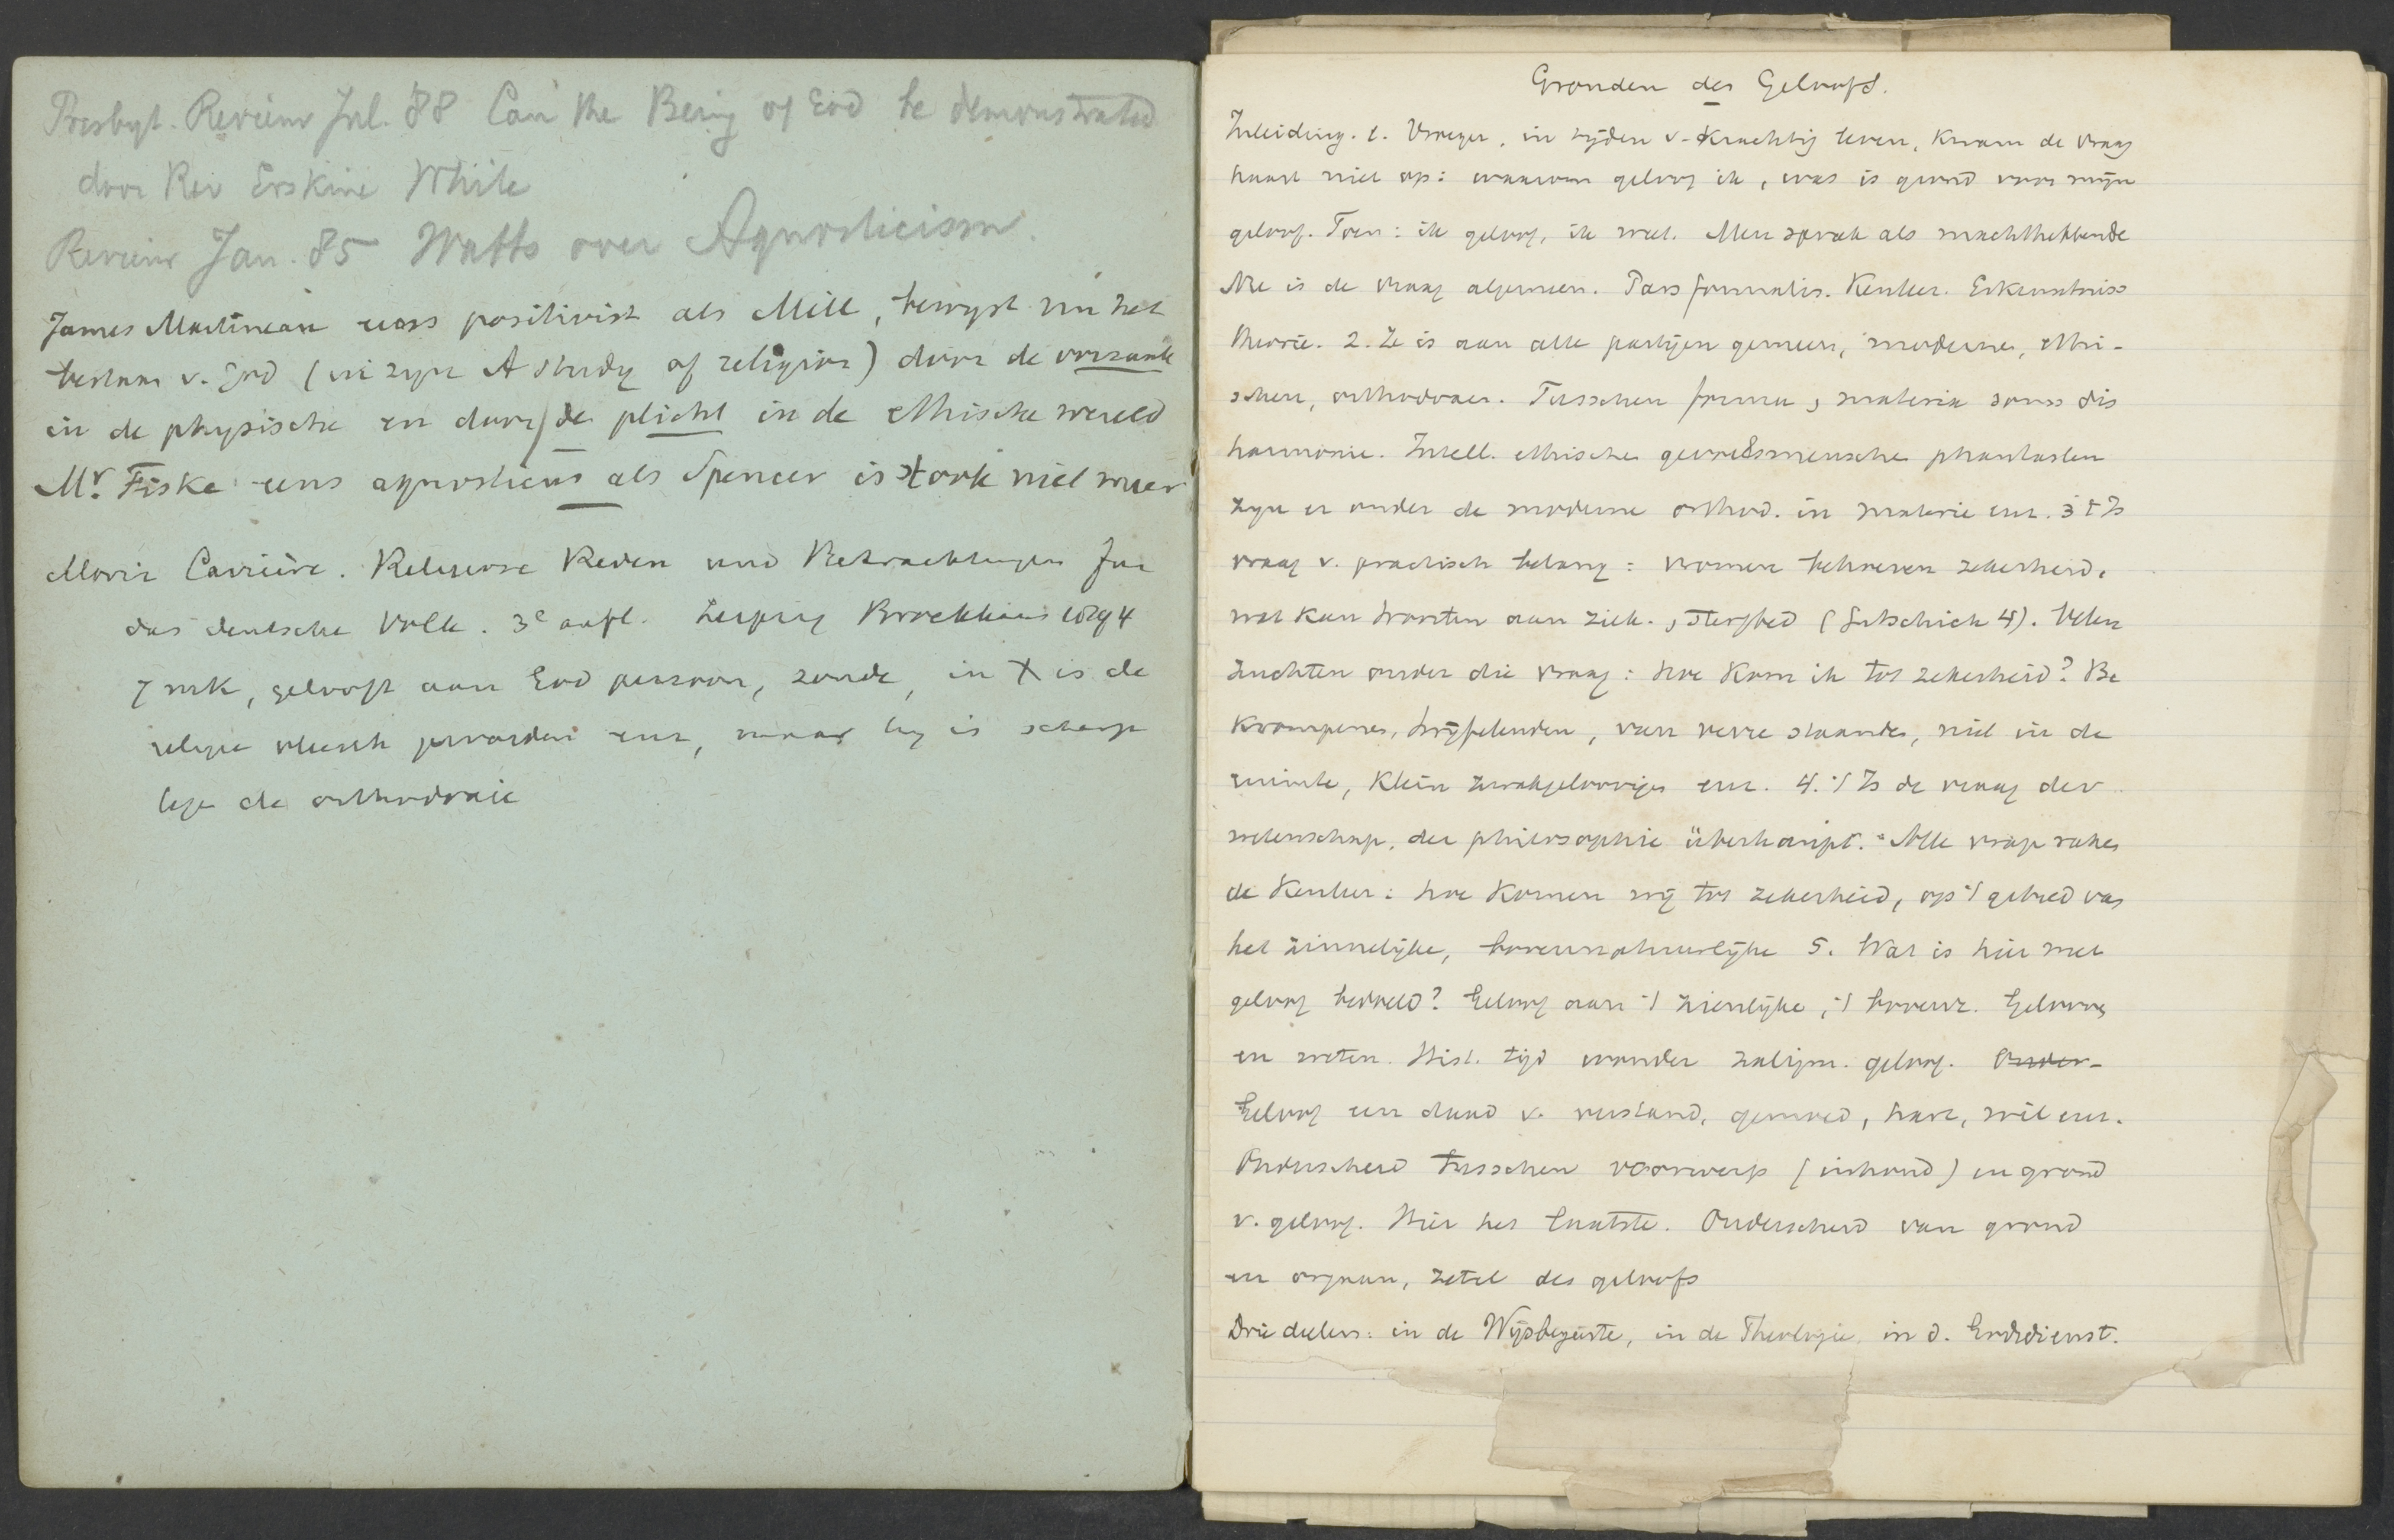 Presbyt. Review Jul. '88 Can the Being of God be demonstrated
door Rev Erskine White
Review Jan. 85 Watts over Agnosticism.
James Martineau eerst positivist als Mill, bewijst nu het
bestaan v. God (in zijn A study of religion) door de oorzaak
in de physische en door de plicht in de ethische wereld
Mr. Fiske eens agnosticus als Spencer is t ook niet meer
Moriz Carrière. Religiöse Reden und Betrachtungen für
das deutsche Volk. 3e aufl. Leipzig Brockhaus 1894
7 mk, gelooft aan God persoon, zonde, in X is de
religie vleesch geworden enz, maar hij is scherp
tegen de orthodoxie
Gronden des Geloofs.
Inleiding. 1. Vroeger, in tijden v. krachtig leven, kwam de vraag
haast niet op: waarom geloof ik, wat is grond voor mijn
geloof. Toen: ik geloof, ik weet. Men sprak als machthebbende
Nu is de vraag algemeen. Pars formalis. Kenleer. Erkenntniss
theorie. 2. Ze is aan alle partijen gemeen, moderne, ethi-
schen, orthodoxen. Tusschen forma, materia soms dis
harmonie. Intell. ethische gevoelsmensche phantasten
zijn er onder de moderne orthod. in materie enz. 3 't Is
vraag v. practisch belang: vromen behoeven zekerheid,
wat kan troosten aan ziek-, sterfbed (Gutschick 4). Velen
zuchten onder die vraag: hoe kom ik tot zekerheid? Be
krompenen, twijfelenden, van verre staande, niet in de
ruimte, klein zwakgeloovigen enz. 4. 't Is de vraag der
wetenschap, der philosophie überhaupt. Alle vragen raken
de kenleer: hoe komen wij tot zekerheid, op 't gebied van
het zinnelijke, bovennatuurlijke 5. Wat is hier met
geloof bedoeld? Geloof aan 't zienlijke, 't bovenz. Gelooven
en weten. Hist. tijd wonder zaligm. geloof. Onder-
Geloof een daad v. verstand, gemoed, hart, wil enz.
Onderscheid tusschen voorwerp (inhoud) en grond
v. geloof. Hier het laatste. Onderscheid van grond
en orgaan, zetel des geloofs
Drie deelen: in de Wijsbegeerte, in de Theologie, in d. Godsdienst.